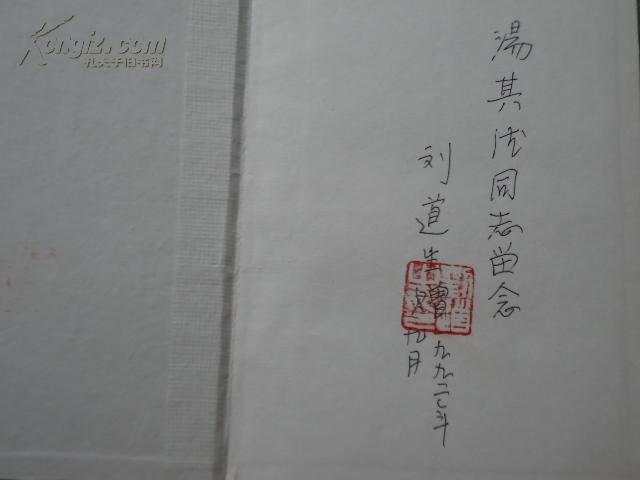 湯其法同志留念
刘道生赠
一九九二年
九月
Kongfz.com
孔夫子旧书网